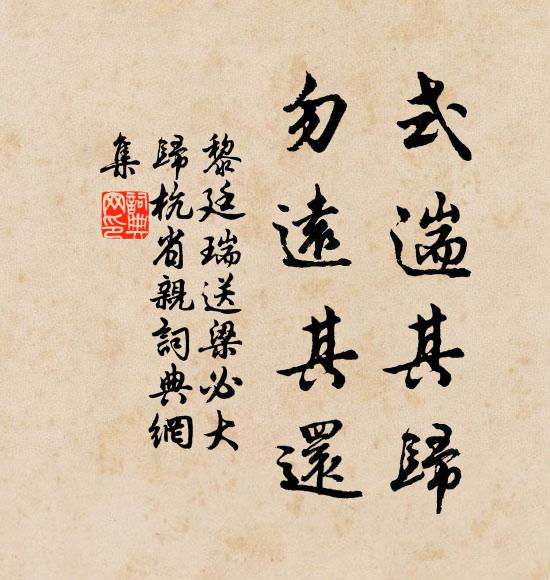 式遄其歸
勿遠其還
黎廷瑞送梁必大
歸杭省親詞典網
集
詞典
网印